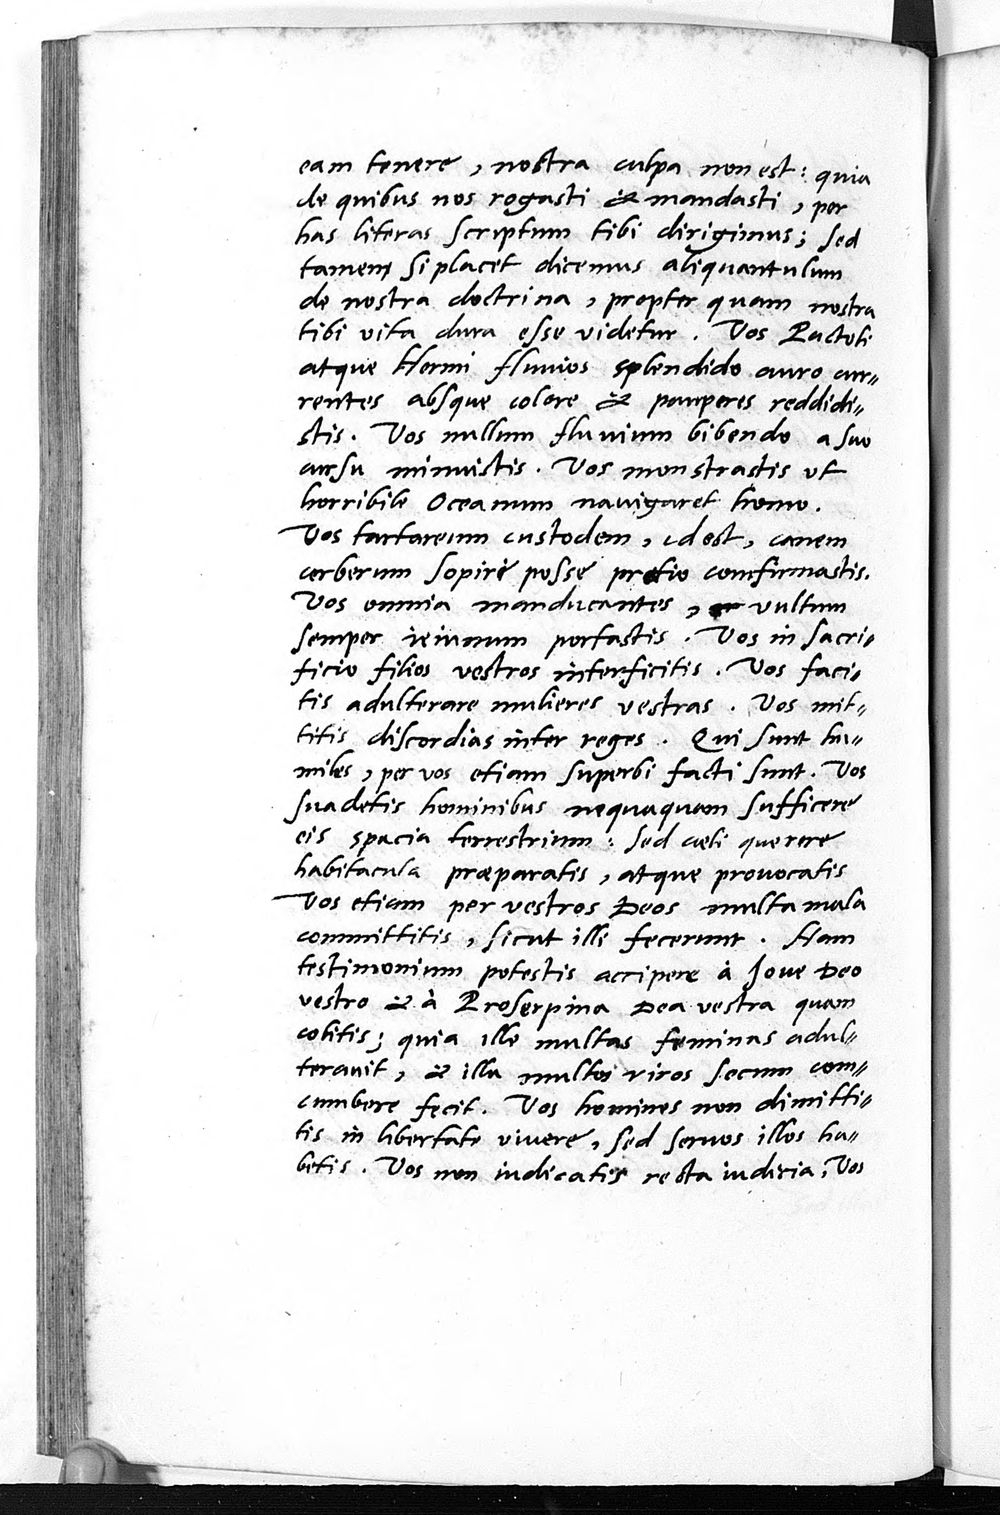 eam tenere, nostra culpa non est: quia
de quibus nos rogasti & mandasti, per
has literas scriptum tibi dirigimus; sed
tamen si placet dicemus aliquantulum
de nostra doctrina, propter quam nostra
tibi vita dura esse videtur. Vos Pactoli
atque Hermi fluuios splendido auro cur„
rentes absque colore & pauperes reddidi„
stis. Vos nullum fluuium bibendo a suo
cursu minuistis. Vos monstrastis ut
horribile Oceanum nauigaret homo.
Vos tartareum custodem, id est, canem
cerberum sopire posse pretio comfirmastis.
Vos omnia manducantes, vultum
semper ieiunum portastis. Vos in sacri„
ficio filios vestros interficitis. Vos faci„
tis adulterare mulieres vestras. Vos mit„
titis discordias inter reges. Qui sunt hu„
miles, per vos etiam superbi facti sunt. Vos
suadetis hominibus nequaquam sufficere
eis spacia terrestrium: sed cæli querere
habitacula præparatis, atque prouocatis
Vos etiam per vestros Deos multa mala
committitis, sicut illi fecerunt. Nam
testimonium potestis accipere à Joue Deo
vestro & à Proserpina Dea vestra quam
colitis; quia ille multas feminas adul„
terauit, & illa multos viros secum com„
cumbere fecit. Vos homines non dimitti„
tis in libertate viuere, sed seruos illos ha„
betis. Vos non iudicatis recta iudicia; Vos